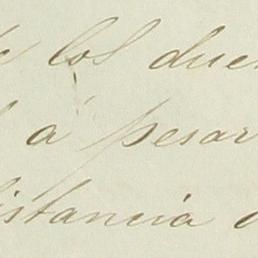 los due
á pesar
istancia